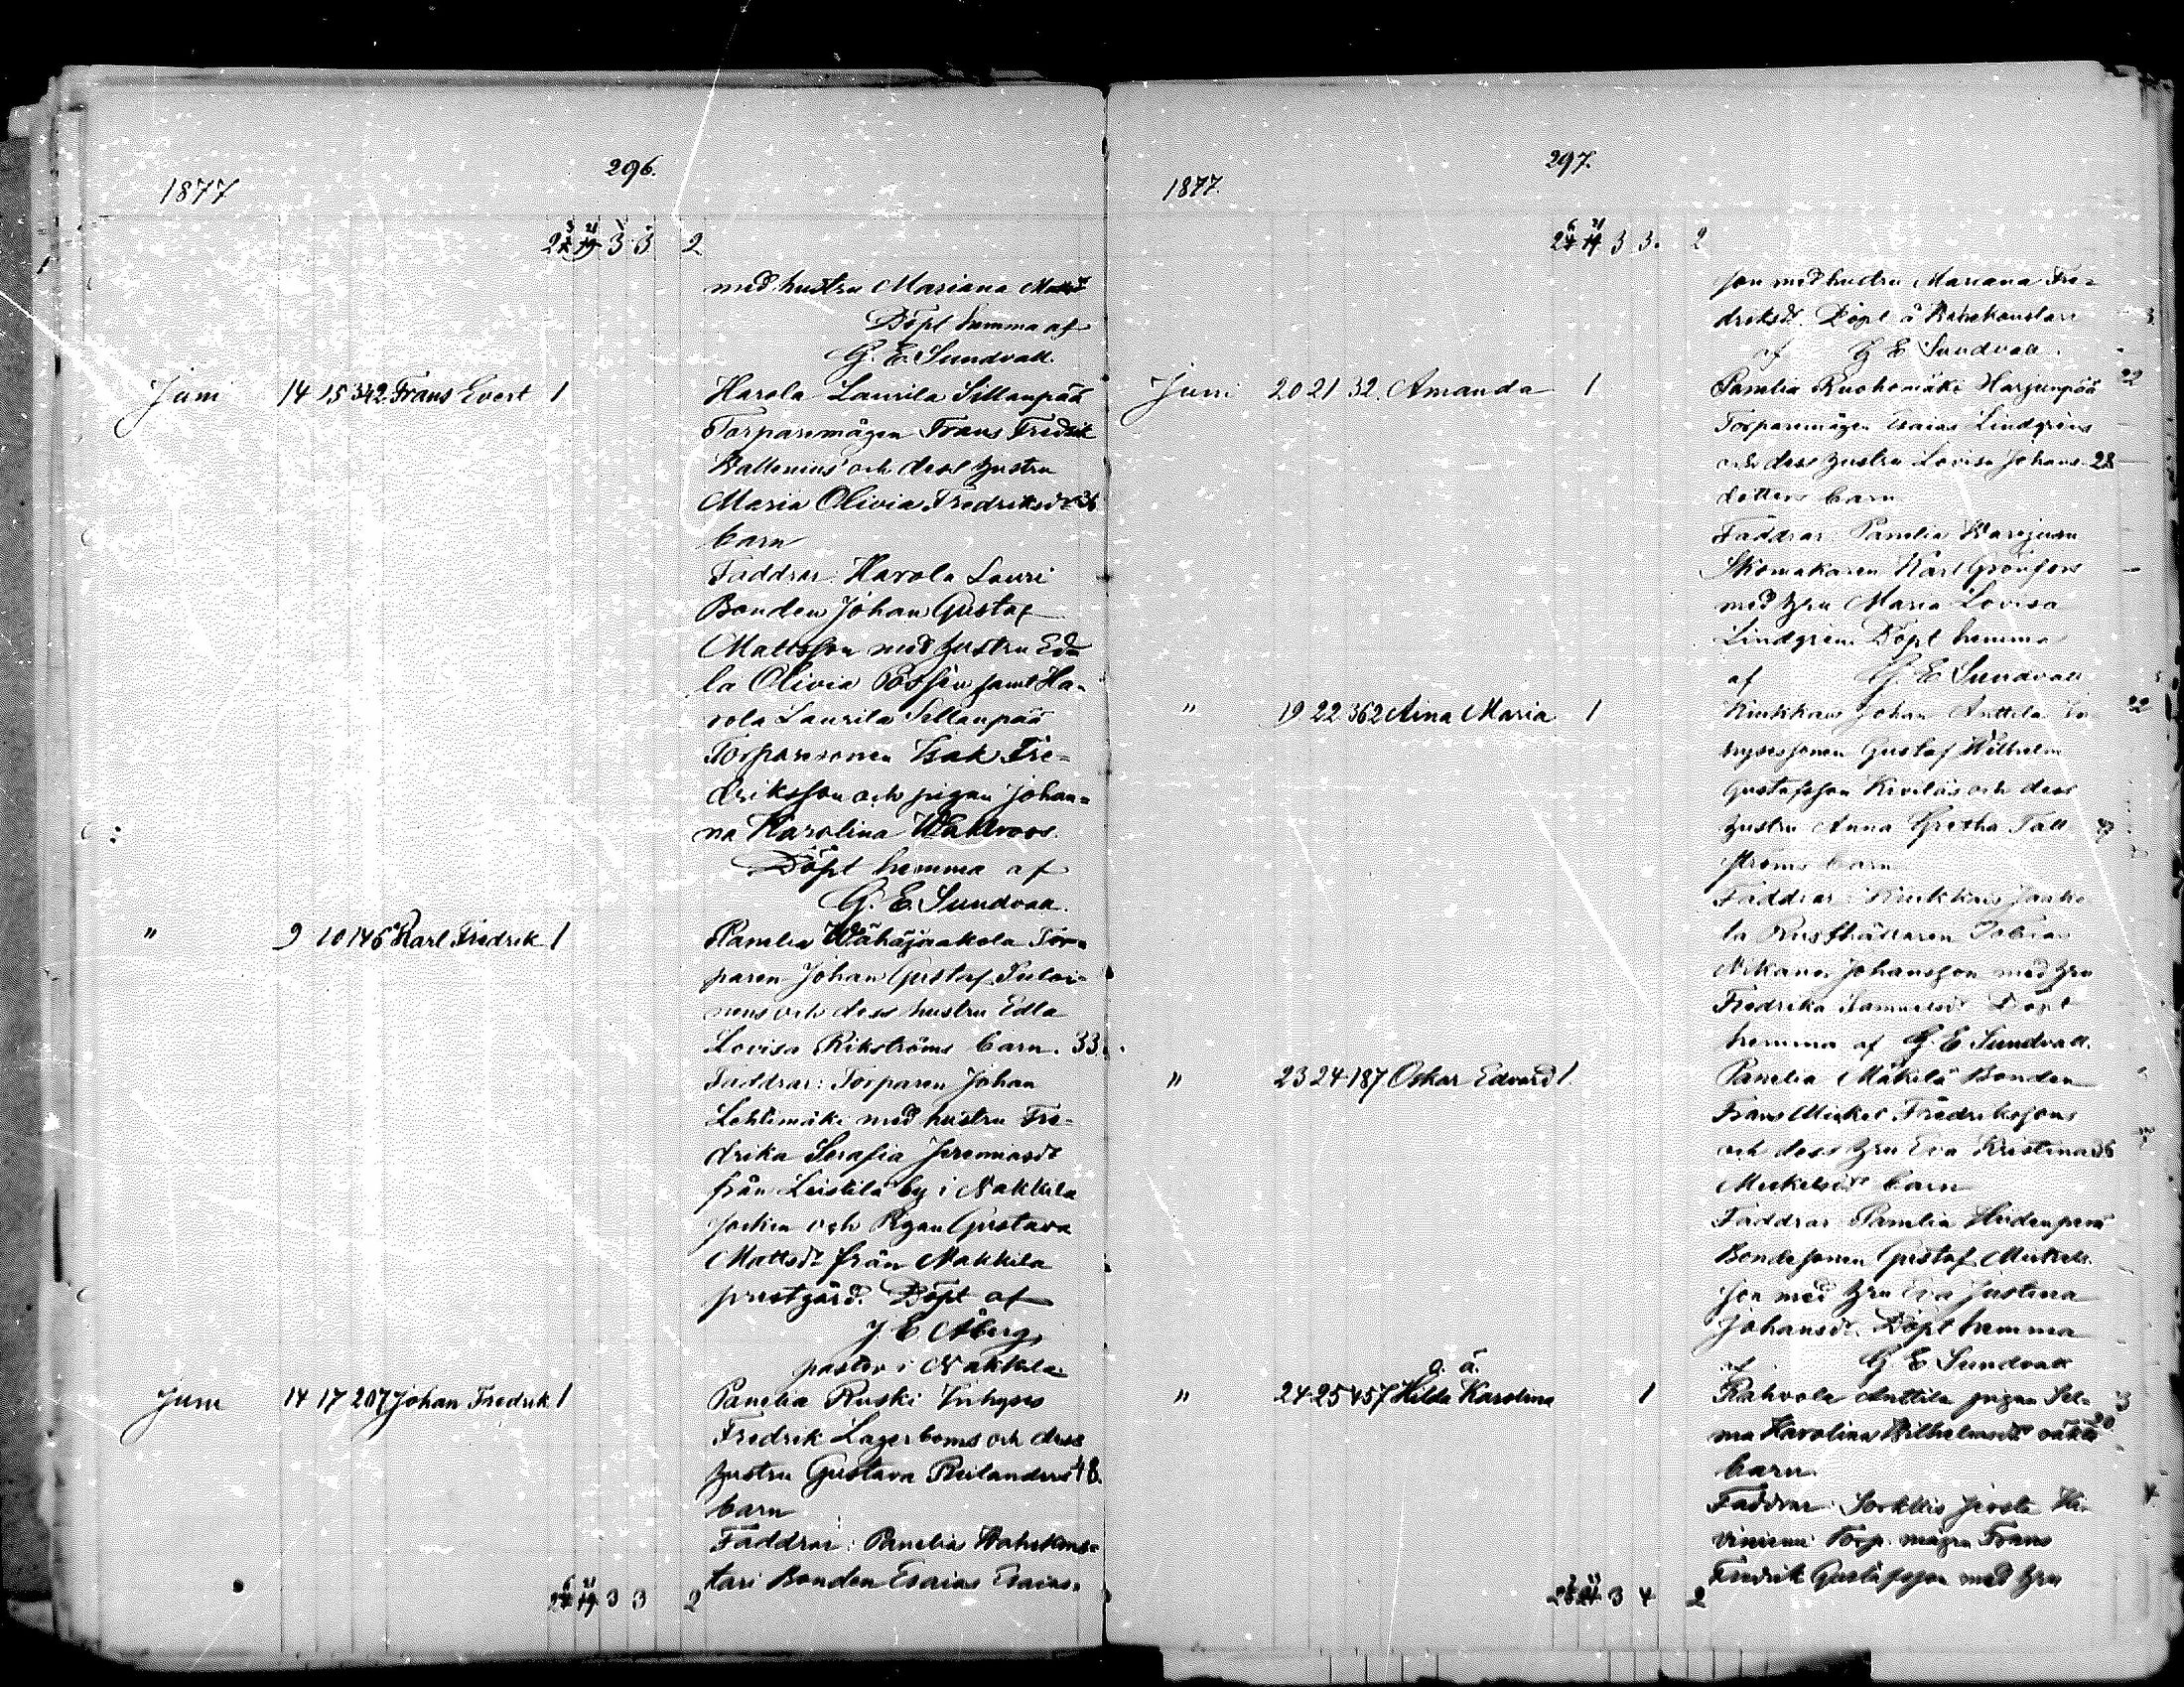 296.
1877
3 3 2
med hustru Mariana Mattsdt
Döpt hemma af
G. E. Sundvall.
Juni 14 15 342 Frans Evert 1 Harola Laurila Sillanpää
Torparemågen Frans Fredrik
Wallenius och dess hustru
Maria Olivia Fredriksdt 36
barn
Faddrar: Harola Lauri
Bonden Johan Gustaf
Mattsson med hustru Ed
la Olivia samt Ha-
rola Laurila Sillanpää
Torparesonen Isak Fre-
driksson och pigan Johan-
na Karolina Wahlroos.
Döpt hemma af
G. E. Sundvall.
" 9 10 146 Karl Fredrik 1 Panelia Wähäjaakola Tor-
paren Johan Gustaf
nens och dess hustru Edla
Lovisa Rikströms barn. 33.
Faddrar: Torparen Johan
Lehtimäki med hustru Fre-
drika Serafia Jeremiasdt
från Leistilä by i Nakkila
socken och Pigan Gustava
Mattsdt från Nakkila
prestgård. Döpt af
J E Åberg,
pastor i Nakkila
Juni 14 17 207 Johan Fredrik 1 Panelia Ruski Inhyses
Fredrik Lagerboms och dess
hustru Gustava Reilanders 48.
barn
Faddrar: Panelia
tari Bonden Esaias Esaias-
3 3 2
297.
1877.
3 3. 2
son med hustru Mariana Fre-
driksdt. Döpt å
af G E Sundvall.
Juni 20 21 32. Amanda 1 Panelia Ruohomäki Harjunpää
Torparemågen Esaias Lindgrens
och dess hustru Lovisa Johans 28
dotters barn
Faddrar: Panelia
Skomakaren Karl Grönfors
med hru Maria Lovisa
Lindgren. Döpt hemma
af G. E. Sundvall
" 19 22 362 Aina Maria 1 Kiukkais Johan Anttila In
hysessonen Gustaf Wilhelm
Gustafsson och dess
hustru Anna Gretha Tall
ströms barn
Faddrar: Kiukkais
la Rusthållaren Tobias
Nikanor Johansson med hru
Fredrika Samuelsdt Döpt
hemma af G. E Sundvall.
" 23 24 187 Oskar Edvard 1. Panelia Mäkilä Bonden
Frans Mickel Fredrikssons
och dess hru Eva Kristina 36
Mickelsdt barn
Faddrar: Panelia
Bondesonen Gustaf Mickels-
son med hru Eva Justina
Johansdt. Döpt hemma
af G E Sundvall
o. ä.
" 24 25 457 Hilda Karolina 1 Rahvola Anttila pigan Sel-
ma Karolina Wilhelmsdt oäkta 20
barn.
Faddrar:
Torp. mågen Frans
Fredrik Gustafsson med hru
3 4 2